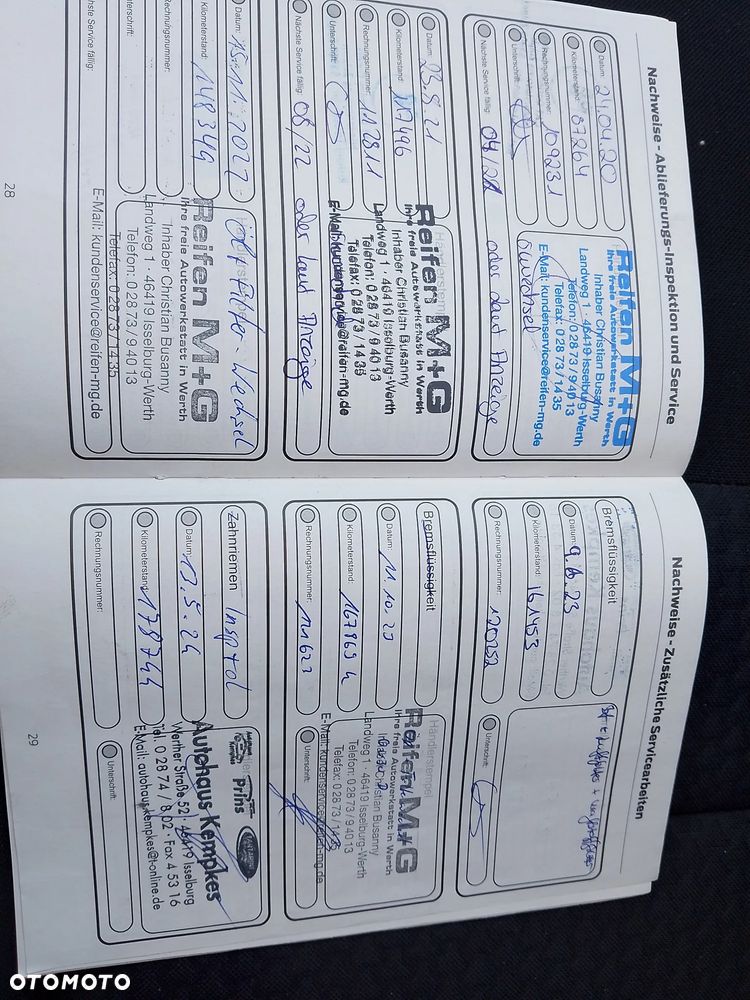 Nachweise - Ablieferungs-Inspektion und Service
Datum: 24.04.20
Kilometerstand: 87264
Rechnungsnummer: 109231
Unterschrift:
Nächste Service fällig: 04/21 oder laut Anzeige
Reifen M+G
Ihre freie Autowerkstatt in Werth
Inhaber Christian Busanny
Landweg 1 · 46419 Isselburg-Werth
Telefon: 0 28 73 / 9 40 13
Telefax: 0 28 73 / 14 35
E-Mail: kundenservice@reifen-mg.de
Ölwechsel
Datum: 23.8.21
Kilometerstand: 117496
Rechnungsnummer: 112811
Unterschrift:
Nächste Service fällig: 08/22 oder laut Anzeige
Reifen M+G
Ihre freie Autowerkstatt in Werth
Inhaber Christian Busanny
Landweg 1 · 46419 Isselburg-Werth
Telefon: 0 28 73 / 9 40 13
Telefax: 0 28 73 / 14 35
E-Mail: kundenservice@reifen-mg.de
Datum: 15.11.2022
Kilometerstand: 148349
Rechnungsnummer:
Unterschrift:
Nächste Service fällig:
Öl + Filter Wechsel
Reifen M+G
Ihre freie Autowerkstatt in Werth
Inhaber Christian Busanny
Landweg 1 · 46419 Isselburg-Werth
Telefon: 0 28 73 / 9 40 13
Telefax: 0 28 73 / 14 35
E-Mail: kundenservice@reifen-mg.de
28
Nachweise - Zusätzliche Servicearbeiten
Bremsflüssigkeit
Datum: 9.6.23
Kilometerstand: 161453
Rechnungsnummer: 120252
Unterschrift:
Bremsflüssigkeit
Datum: 11.10.23
Kilometerstand: 167869
Rechnungsnummer:
Unterschrift:
Händlerstempel
Reifen M+G
Ihre freie Autowerkstatt in Werth
Inhaber Christian Busanny
Landweg 1 · 46419 Isselburg-Werth
Telefon: 0 28 73 / 9 40 13
Telefax: 0 28 73 / 14 35
E-Mail: kundenservice@reifen-mg.de
Zahnriemen
Datum: 13.5.24
Kilometerstand: 178744
Rechnungsnummer:
Unterschrift:
Prins
Autohaus Kempkes
Werther Straße 52 · 46419 Isselburg
Tel. 0 28 74 / 8 02 · Fax 4 53 16
E-Mail: autohaus.kempkes@t-online.de
29
OTOMOTO